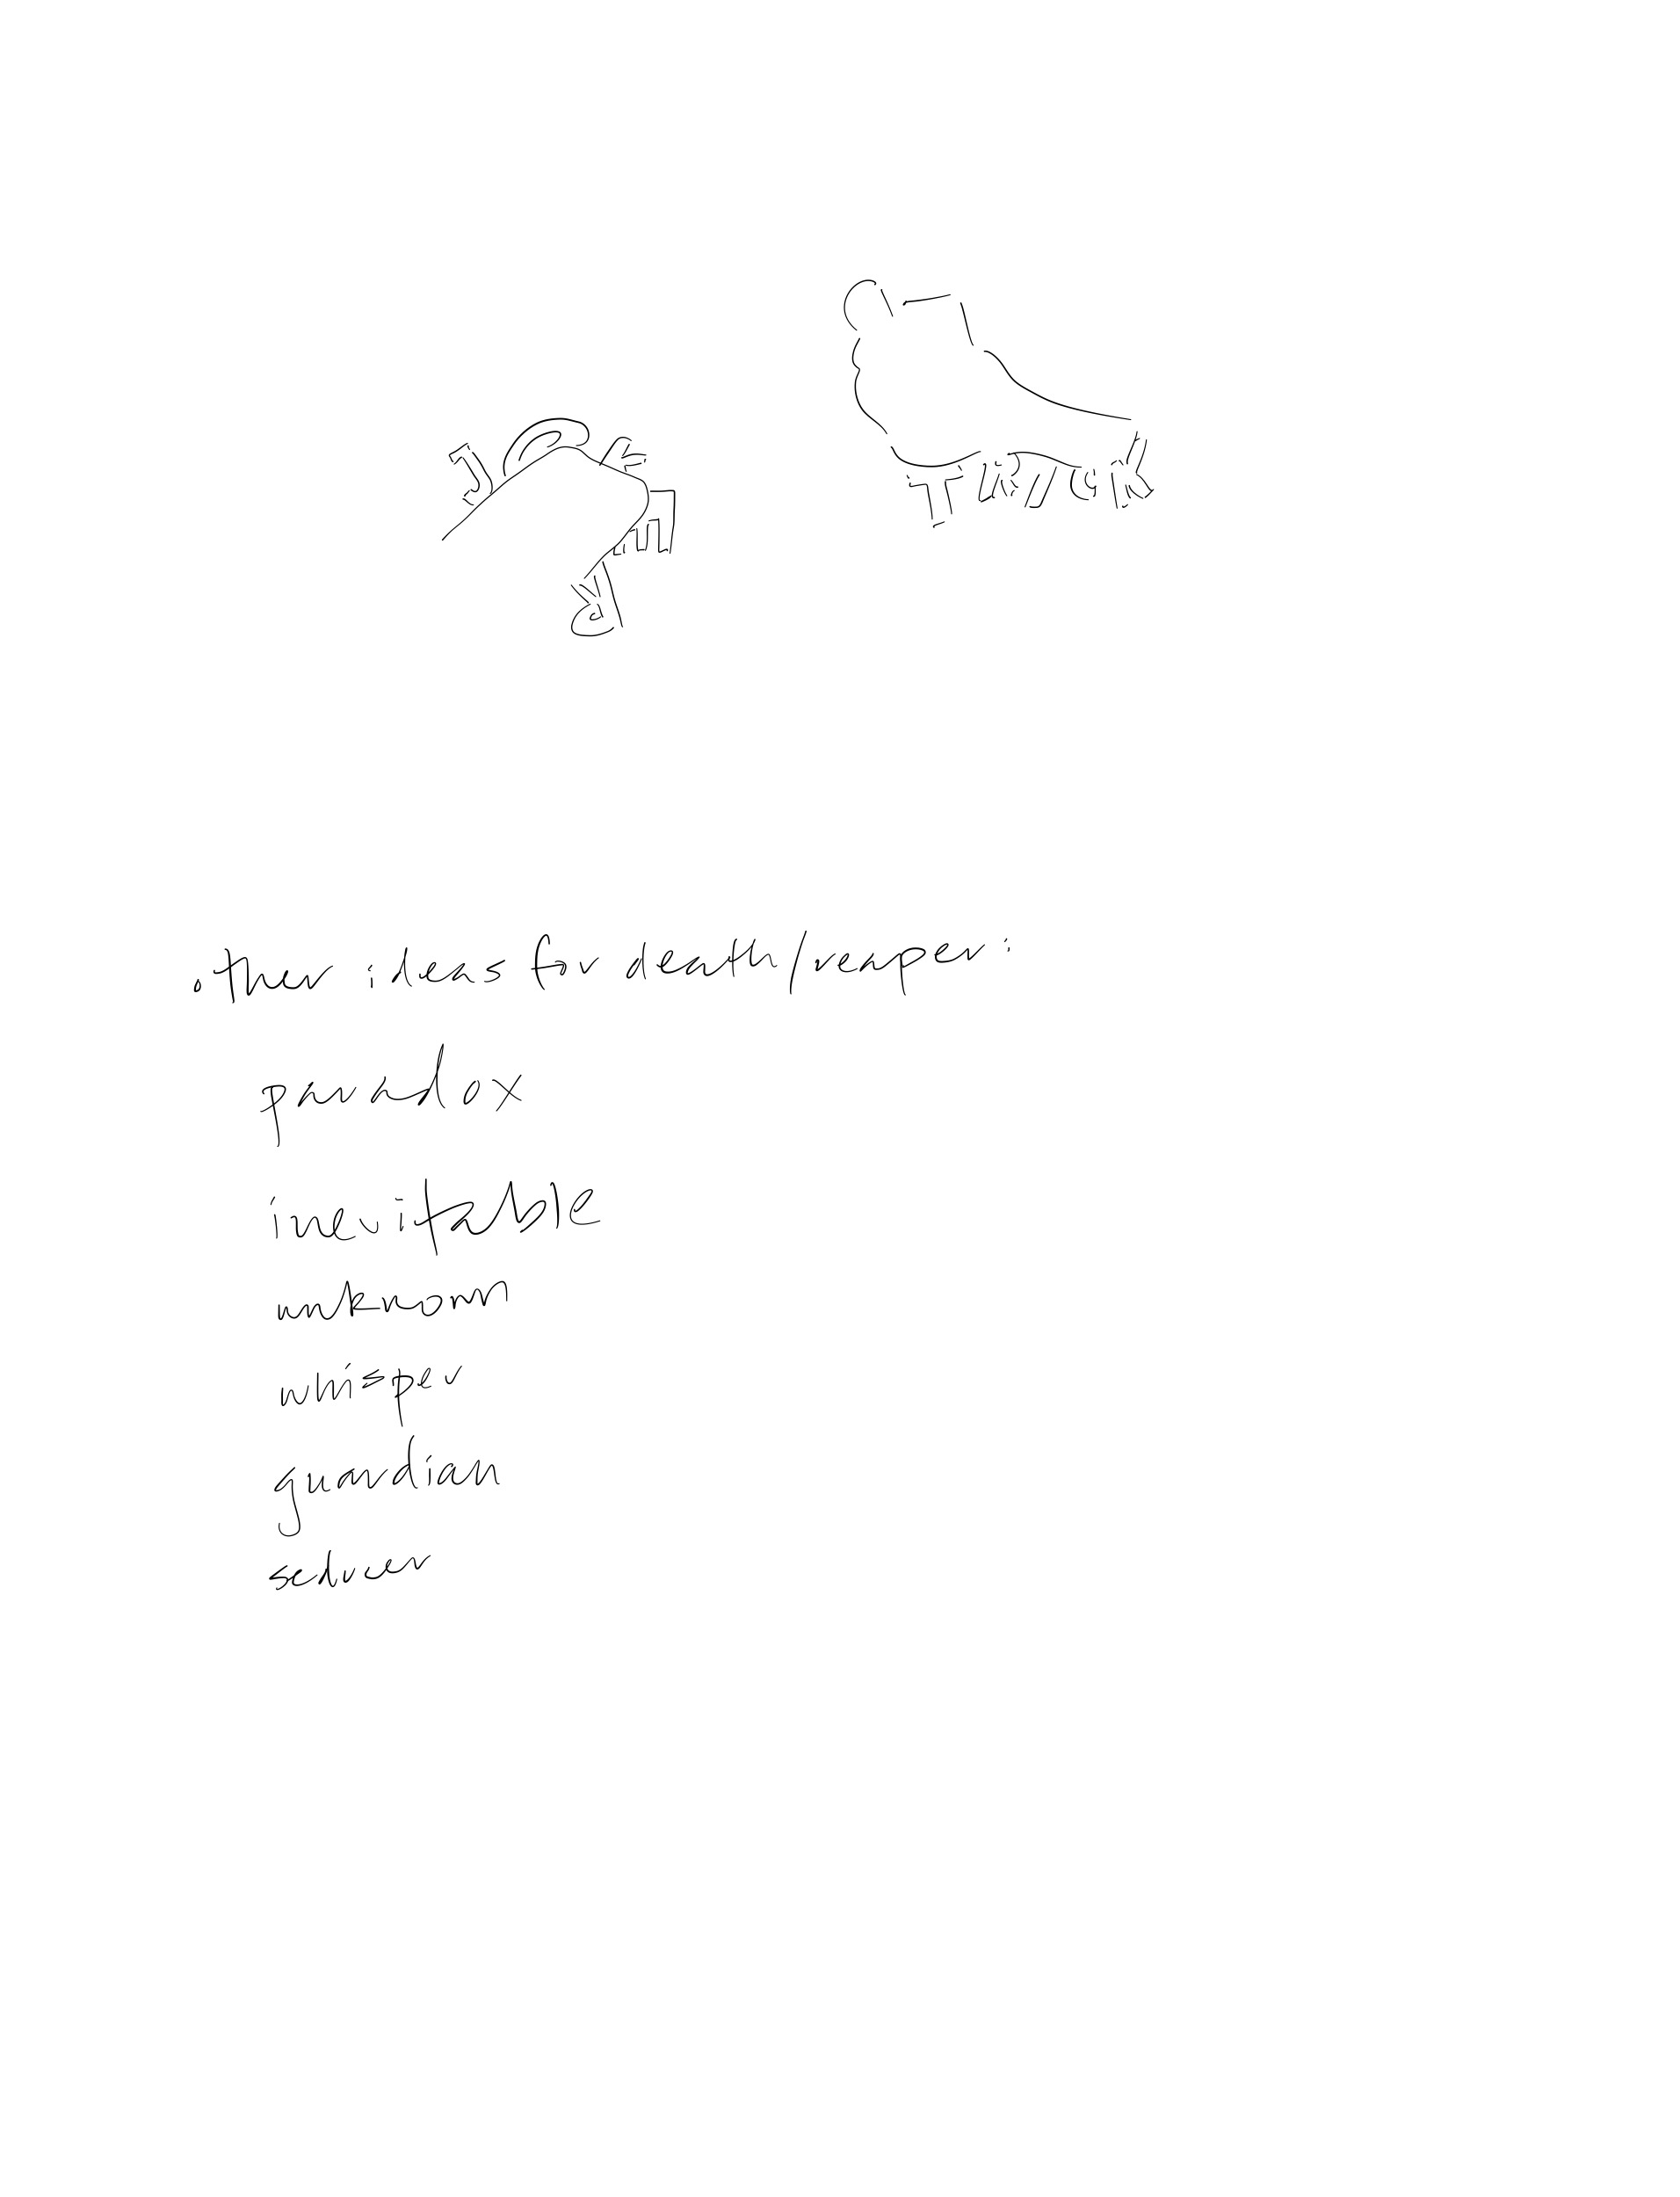 TRICK
other ideas for death/reaper:
paradox
inevitable
unknown
whisper
guardian
seducer